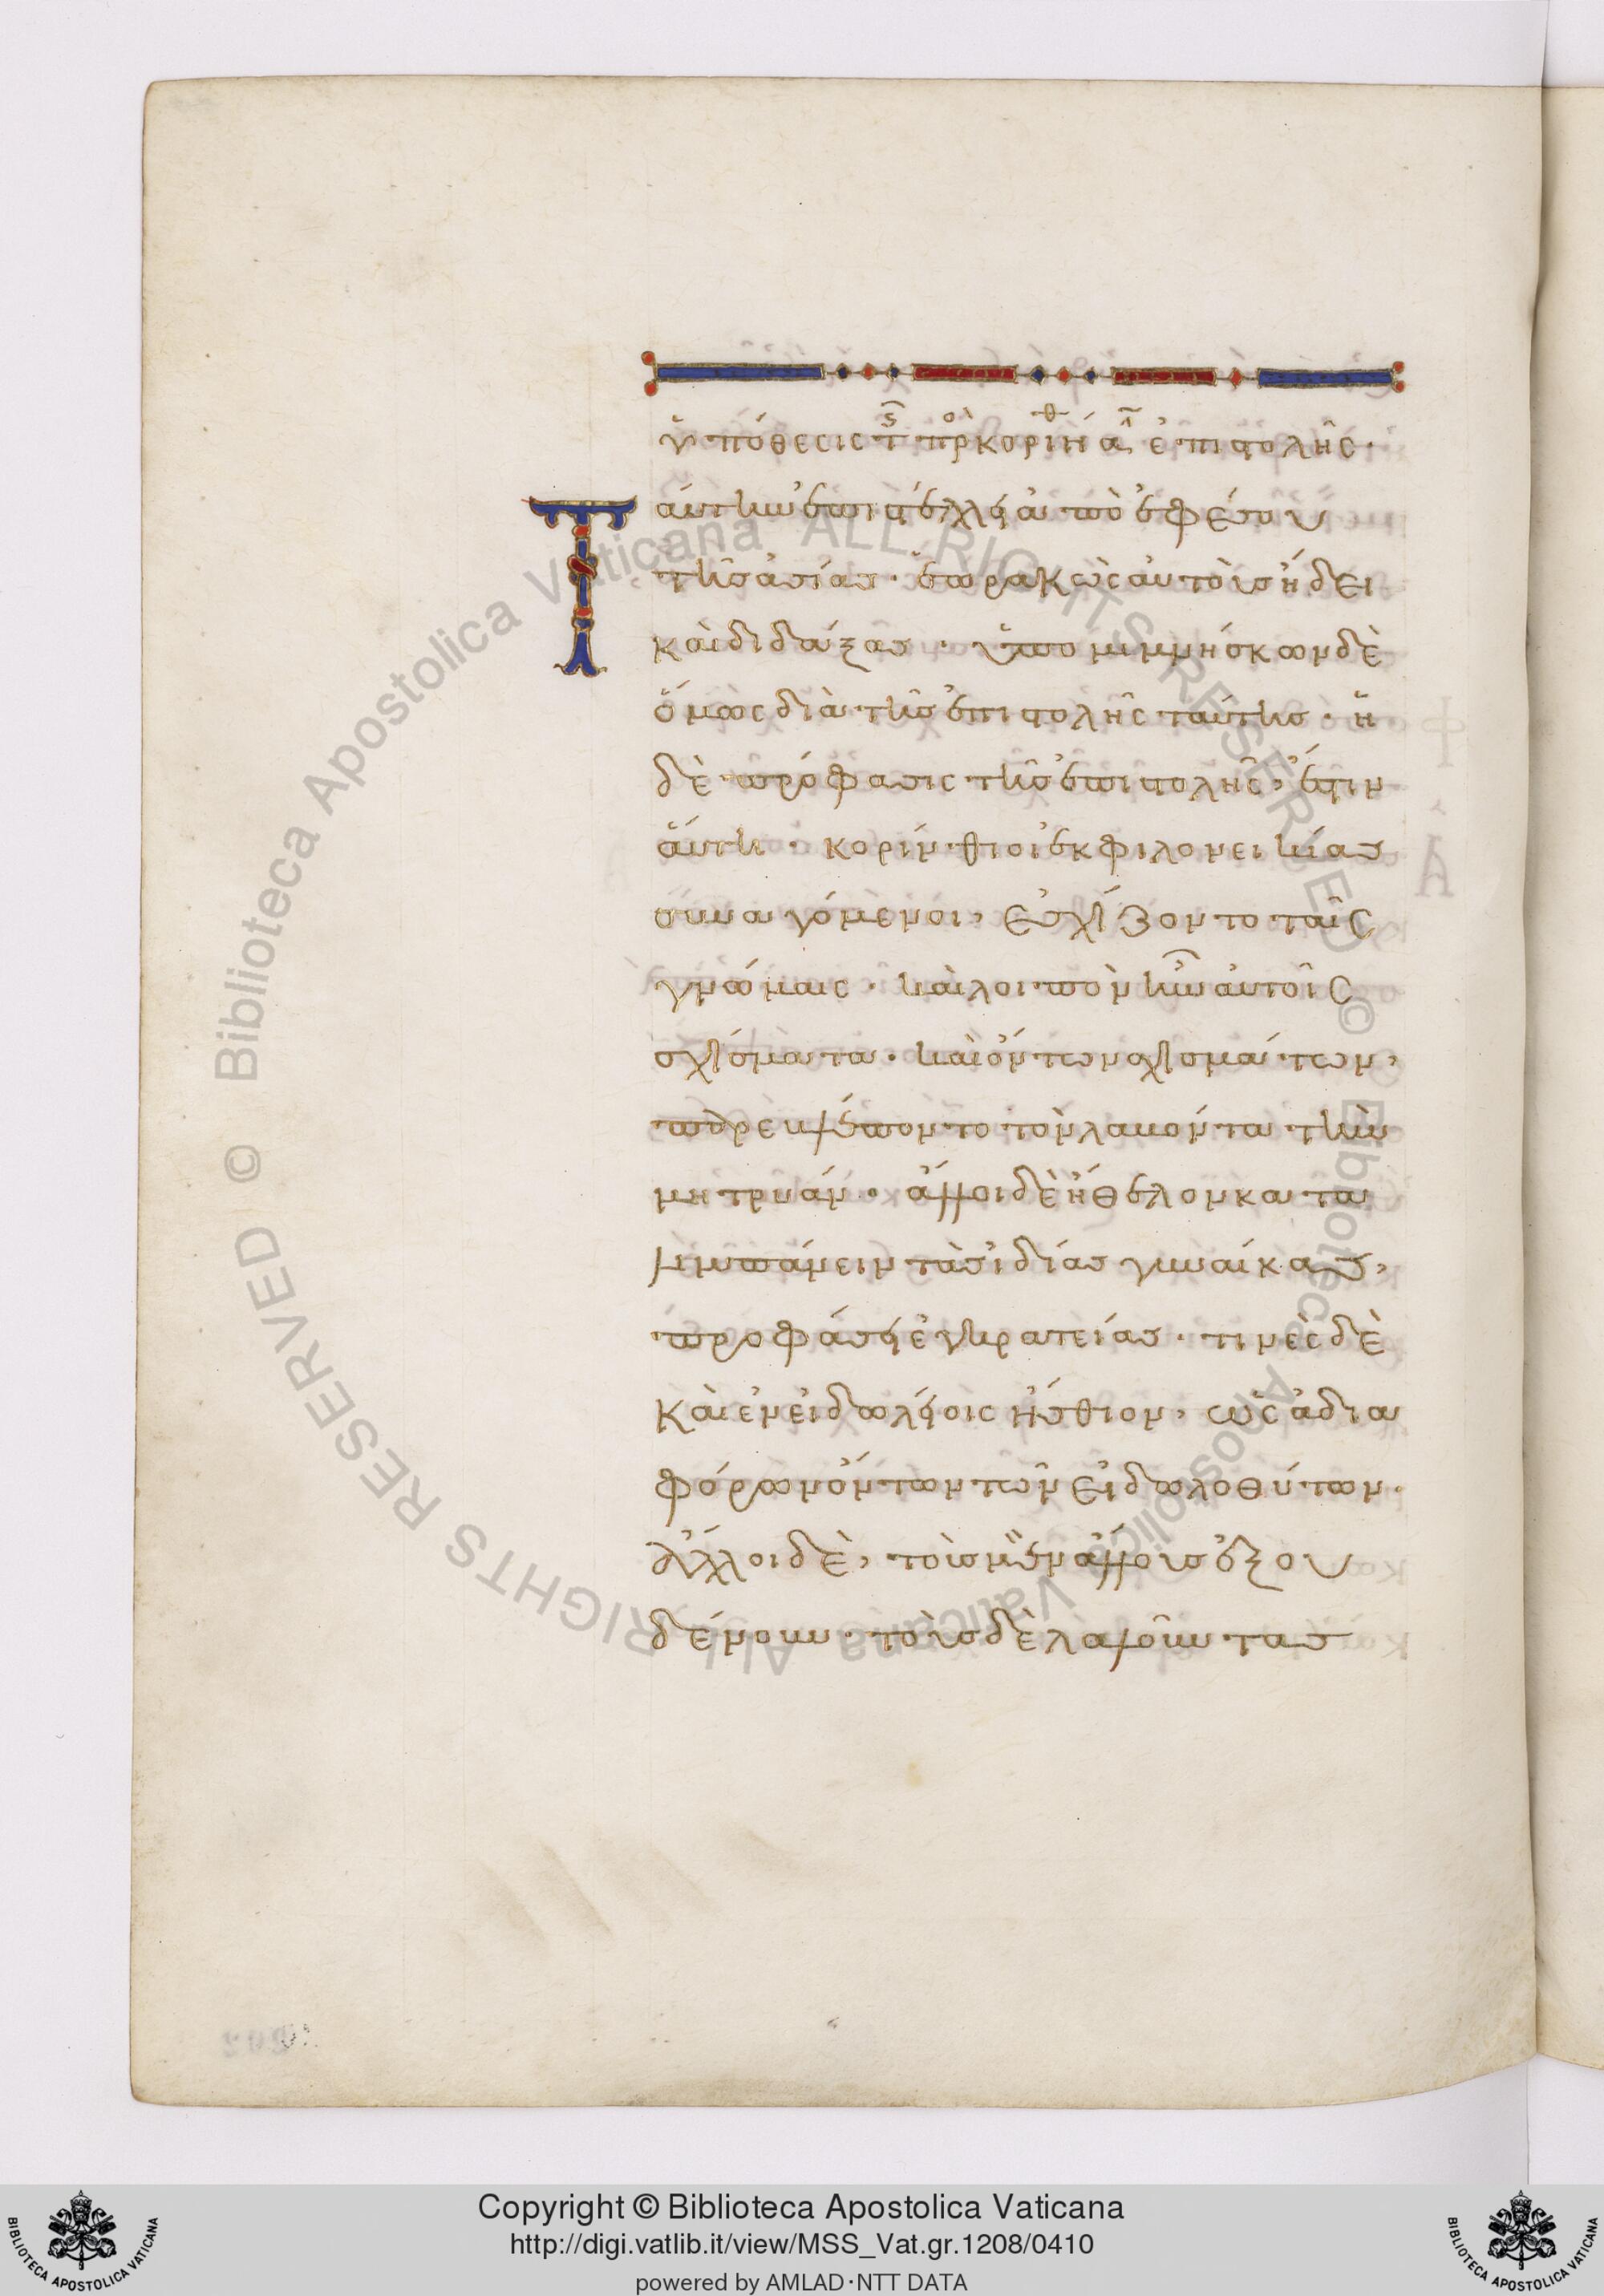 ὑπόθεσις τῆς πρὸς κορινθ α ἐπιστολῆς·
Ταύτην ἐπιστέλλει ἀπὸ ἐφέσου
τῆς ἀσίας· ἑωρακὼς αὐτοὺς ἤδει
καὶ διδάξας· ὑπομιμνήσκων δὲ
ὅμως διὰ τῆς ἐπιστολῆς ταύτης· ἡ
δὲ πρόφασις τῆς ἐπιστολῆς, ἔστιν
αὕτη· κορίνθιοι ἐκ φιλονεικίας
συναγόμενοι, ἐσχίζοντο ταῖς
γνώμαις· καὶ λοιπὸν ἦν αὐτοῖς
σχίσματα· καὶ ὄντων σχισμάτων,
παρέβλεποντο τὸν λαβόντα τὴν
μητρυάν· ἄλλοι δὲ ἤθελον κατα
λιμπάνειν τὰς ἰδίας γυναίκας,
προφάσει ἐγκρατείας· τινὲς δὲ
καὶ ἐν εἰδωλείοις ἤσθιον, ὡς ἀδια
φόρων ὄντων τῶν εἰδωλοθύτων·
ἄλλοι δὲ, τοὺς μὲν ἄλλους ἐξου
δένουν· τοὺς δὲ λαλοῦντας
Copyright © Biblioteca Apostolica Vaticana
http://digi.vatlib.it/view/MSS_Vat.gr.1208/0410
powered by AMLAD·NTT DATA
© Biblioteca Apostolica Vaticana ALL RIGHTS RESERVED © Biblioteca Apostolica Vaticana ALL RIGHTS RESERVED
BIBLIOTECA APOSTOLICA VATICANA
BIBLIOTECA APOSTOLICA VATICANA